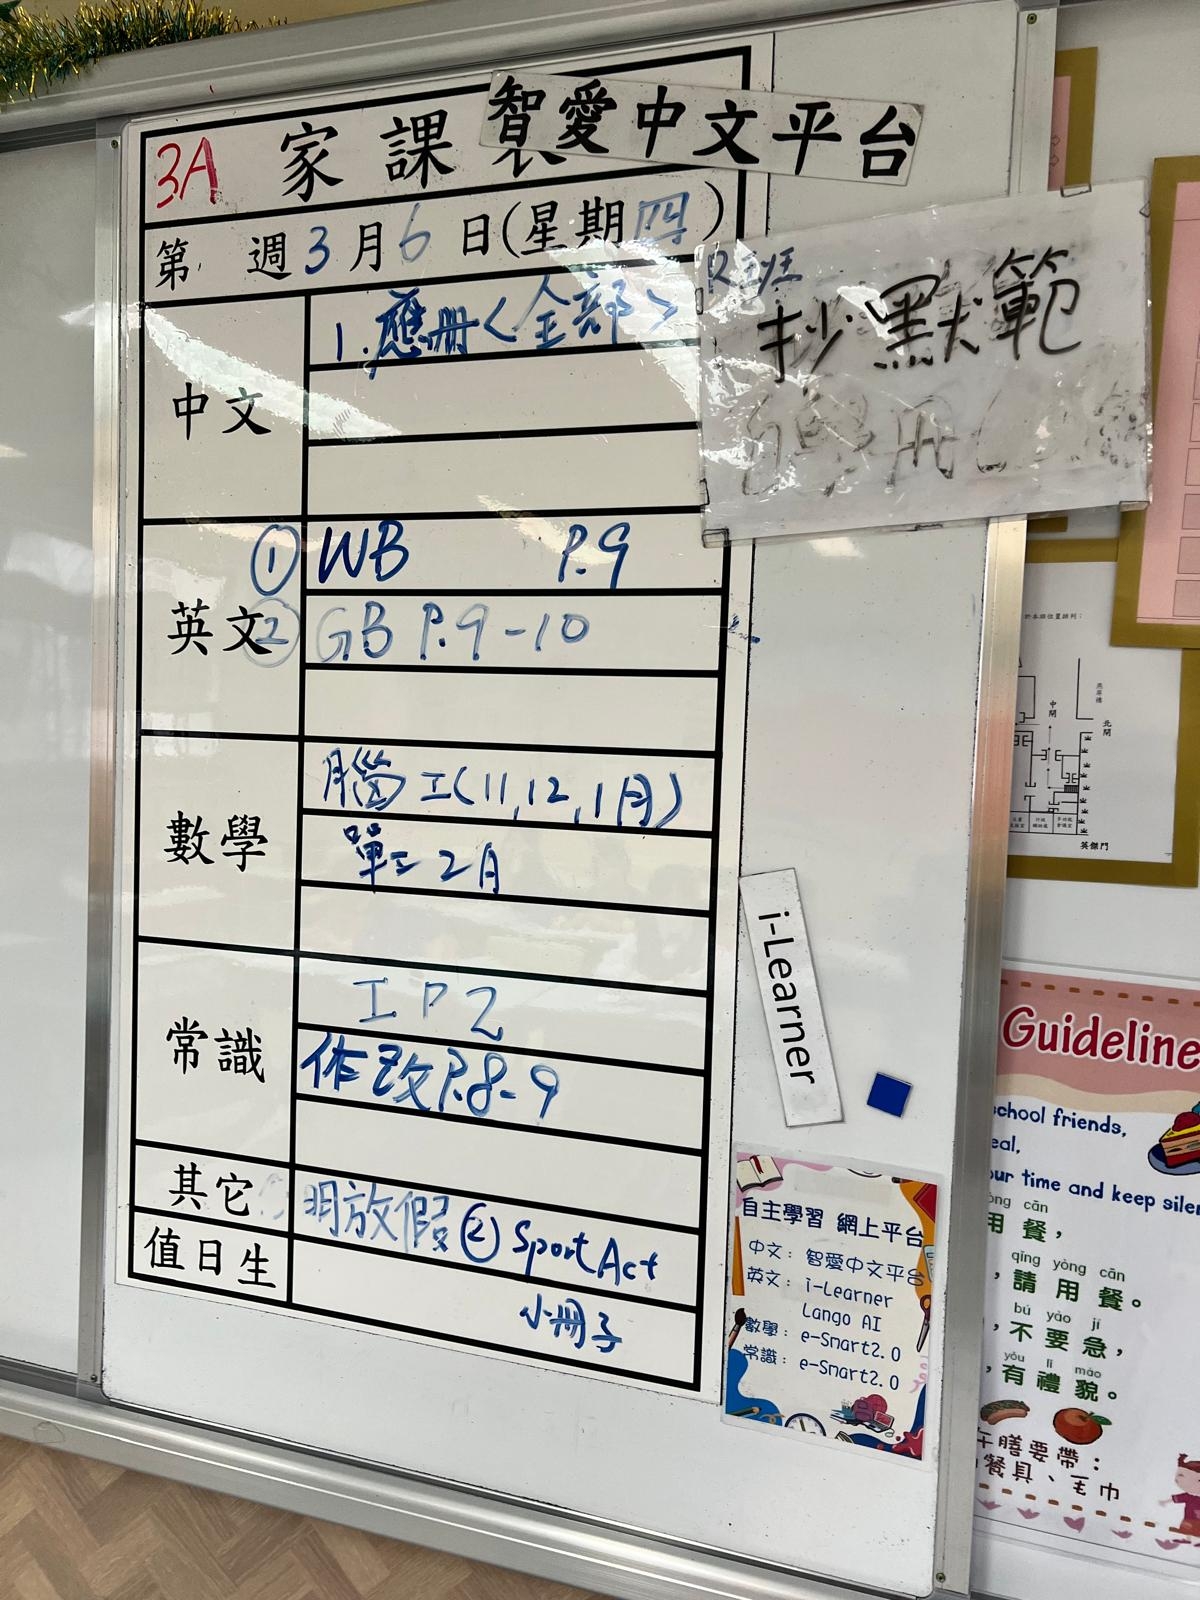 智愛中文平台
3A 家課表
第 週3月6日(星期四)
R班
抄默範
自學冊
中文
1.應冊<全部>
英文
① WB P.9
② GB P.9-10
數學
腦工(11,12,1月)
單工2月
常識
工P2
作改P.8-9
其它
明放假②Sport Act
小冊子
值日生
i-Learner
自主學習 網上平台
中文：智愛中文平台
英文：i-Learner
Lango AI
數學：e-Smart2.0
常識：e-Smart2.0
於本班位置排列：
中閘
北閘
英傑門
Guideline
school friends,
eal,
our time and keep silen
cān
用餐，
qǐng yòng cān
，請用餐。
bú yào jí
，不要急，
yǒu lǐ mào
，有禮貌。
午膳要帶：
餐具、毛巾